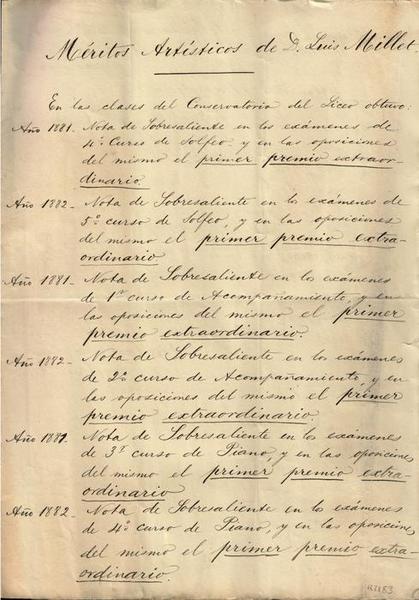 Méritos Artísticos de D. Luis Millet
En las clases del Conservatorio del Liceo obtuvo:
Año 1881. Nota de Sobresaliente en los exámenes de
4º Curso de Solfeo, y en las oposiciones
del mismo el primer premio extraor-
dinario.
Año 1882. Nota de Sobresaliente en los exámenes de
5º curso de Solfeo, y en las oposiciones
del mismo el primer premio extra-
ordinario
Año 1881. Nota de Sobresaliente en los exámenes
de 1er curso de Acompañamiento, y en
las oposiciones del mismo el primer
premio extraordinario.
Año 1882. Nota de Sobresaliente en los exámenes
de 2º curso de Acompañamiento, y en
las oposiciones del mismo el primer
premio extraordinario.
Año 1881. Nota de Sobresaliente en los exámenes
de 3r curso de Piano, y en las oposiciones
del mismo el primer premio extra-
ordinario
Año 1882. Nota de Sobresaliente en los exámenes
de 4º curso de Piano, y en las oposiciones
del mismo el primer premio extra-
ordinario.